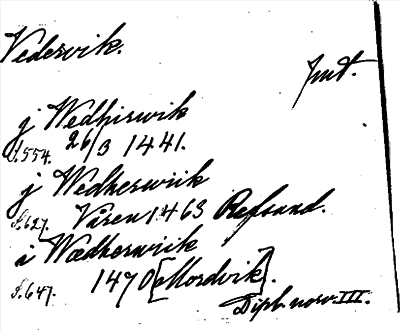 Vedersvik.
Jmt.
j Wedhirswik
S. 554. 26/3 1441.
j Wedherswiik
S. 627. Våren 1463 Refsund.
i Wædherwiik
S. 647. 1470 [Mordvik].
Dipl. norv. III.